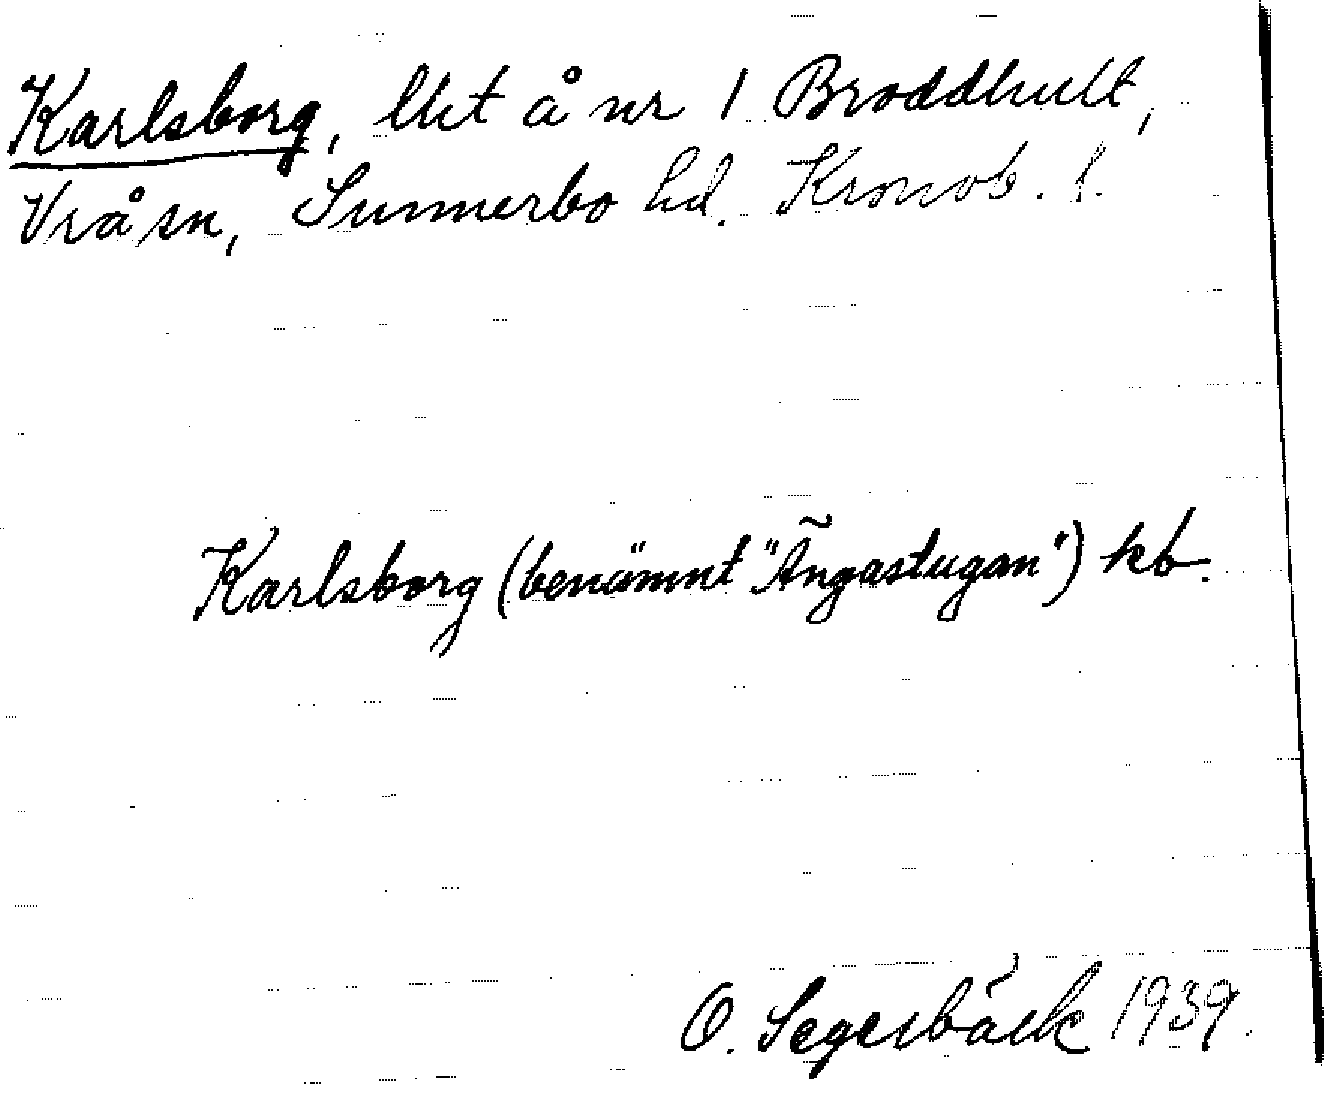 Karlsborg, lht å nr 1 Broddhult,
Vrå sn, Sunnerbo hd. Kronob. l.
Karlsborg (benämnt "Ängastugan") kb.
O. Segerbäck 1939.